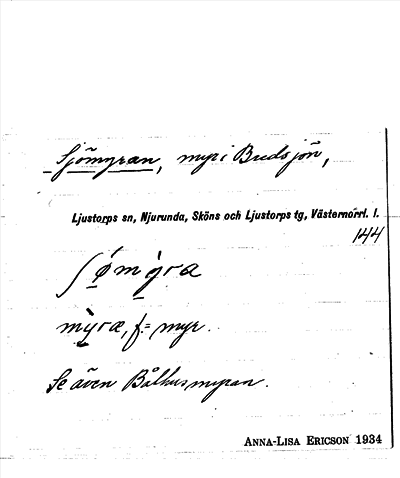 Sjömyran, myr i Budsjön,
Ljustorps sn, Njurunda, Sköns och Ljustorps tg, Västernorrl. l.
144
ʃǿmỳra
mỳra, f. = myr.
Se även Bålhusmyran.
ANNA-LISA ERICSON 1934